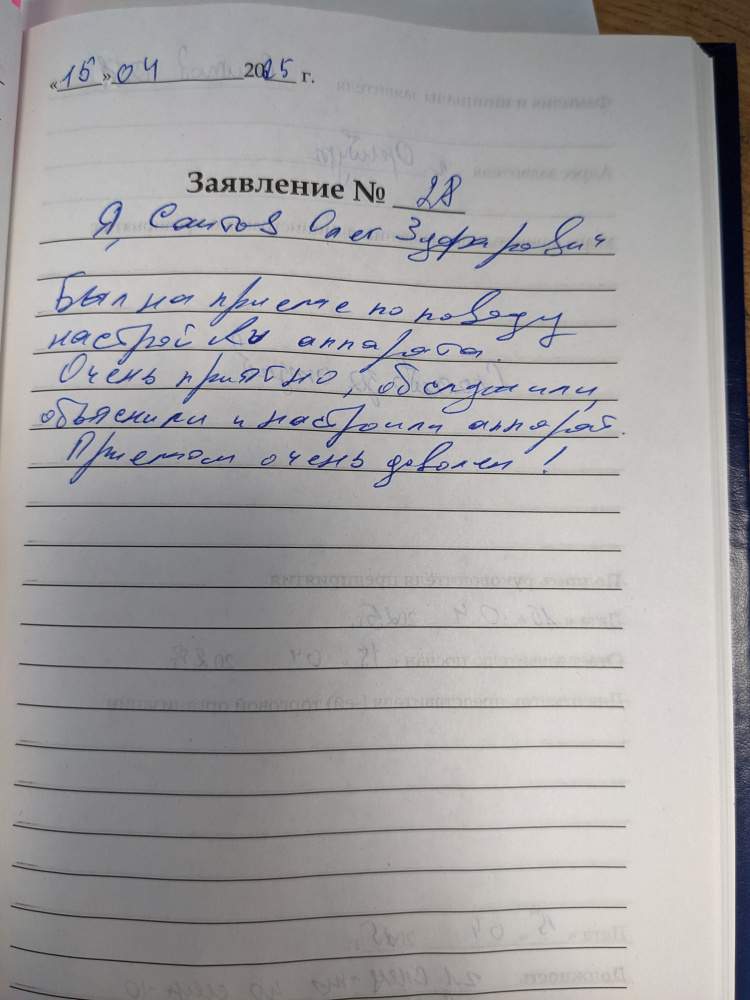 «15» 04 2025 г.
Заявление № 28
Я, Саитов Олег Зуфарович
Был на приеме по поводу
настройки аппарата.
Очень приятно, обслужили,
объяснили и настроили аппарат.
Приемом очень доволен!